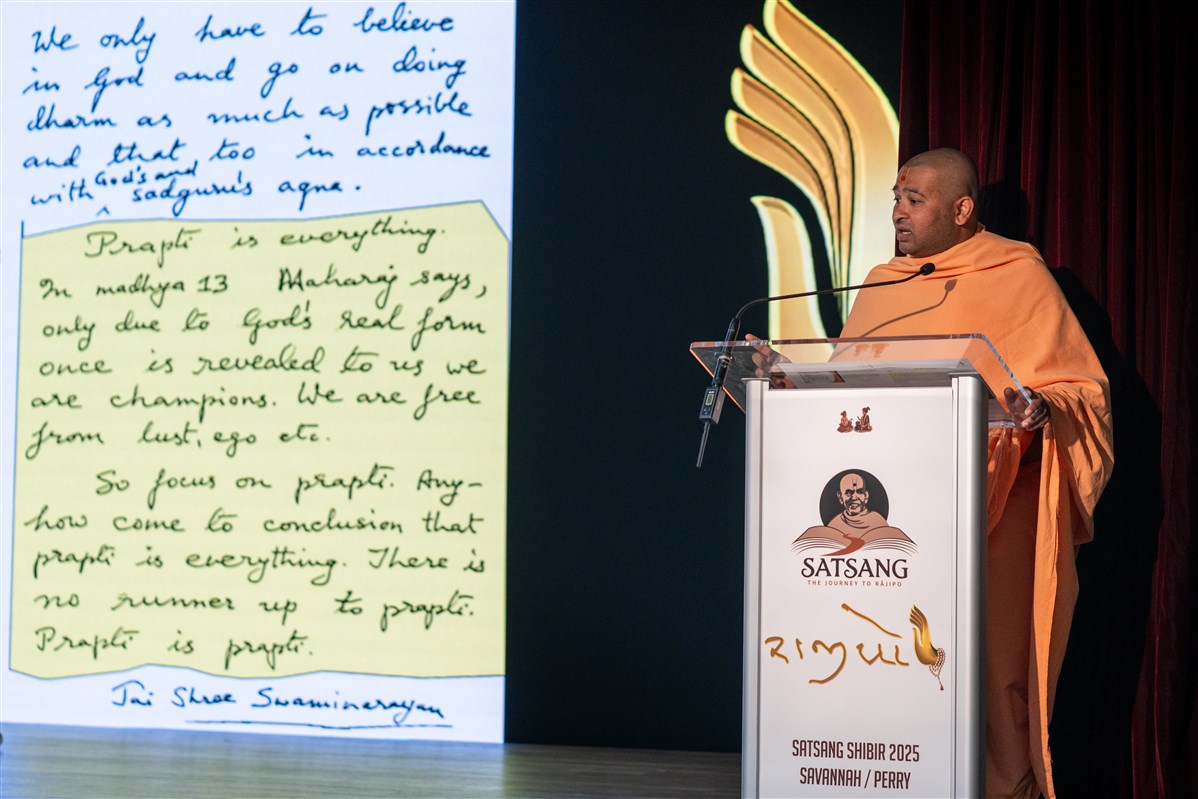 We only have to believe
in God and go on doing
dharm as much as possible
and that too in accordance
God's and
with sadguru's agna.
Prapti is everything.
In madhya 13 Maharaj says,
only due to God's real form
once is revealed to us we
are champions. We are free
from lust, ego etc.
So focus on prapti. Any-
how come to conclusion that
prapti is everything. There is
no runner up to prapti.
Prapti is prapti.
Jai Shree Swaminarayan
SATSANG
THE JOURNEY TO RĀJIPO
રાજીપો
SATSANG SHIBIR 2025
SAVANNAH / PERRY